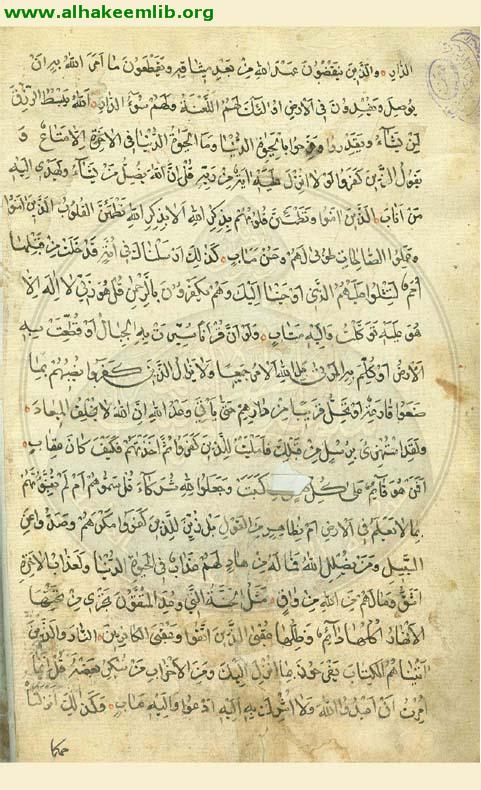 www.alhakeemlib.org
الدار والذين ينقضون عهد الله من بعد ميثاقه ويقطعون ما امر الله به ان
يوصل ويفسدون في الارض اولئك لهم اللعنة ولهم سوء الدار الله يبسط الرزق
لمن يشاء ويقدر وفرحوا بالحيوة الدنيا وما الحيوة الدنيا في الاخرة الا متاع و
يقول الذين كفروا لولا انزل عليه اية من ربه قل ان الله يضل من يشاء ويهدي اليه
من اناب الذين امنوا وتطمئن قلوبهم بذكر الله الا بذكر الله تطمئن القلوب الذين امنوا
وعملوا الصالحات طوبى لهم وحسن ماب كذلك ارسلناك في امة قد خلت من قبلها
امم لتتلوا عليهم الذي اوحينا اليك وهم يكفرون بالرحمن قل هو ربي لا اله الا
هو عليه توكلت واليه متاب ولو ان قرانا سيرت به الجبال او قطعت به
الارض او كلم به الموتى بل لله الامر جميعا ولا يزال الذين كفروا تصيبهم بما
صنعوا قارعة او تحل قريبا من دارهم حتى ياتي وعد الله ان الله لا يخلف الميعاد
ولقد استهزئ برسل من قبلك فامليت للذين كفروا ثم اخذتهم فكيف كان عقاب
افمن هو قائم على كل كسبت وجعلوا لله شركاء قل سموهم ام لم تنبئونه
بما لا يعلم في الارض ام بظاهر من القول بل زين للذين كفروا مكرهم وصدوا عن
السبيل ومن يضلل الله فما له من هاد لهم عذاب في الحيوة الدنيا ولعذاب الاخرة
اشق وما لهم من الله من واق مثل الجنة التي وعد المتقون تجري من تحتها
الانهار اكلها دائم وظلها عقبى الذين اتقوا وعقبى الكافرين النار والذين
اتيناهم الكتاب يفرحون بما انزل اليك ومن الاحزاب من ينكر بعضه قل انما
امرت ان اعبد الله ولا اشرك به اليه ادعوا واليه ماب وكذلك انزلناه
حكما